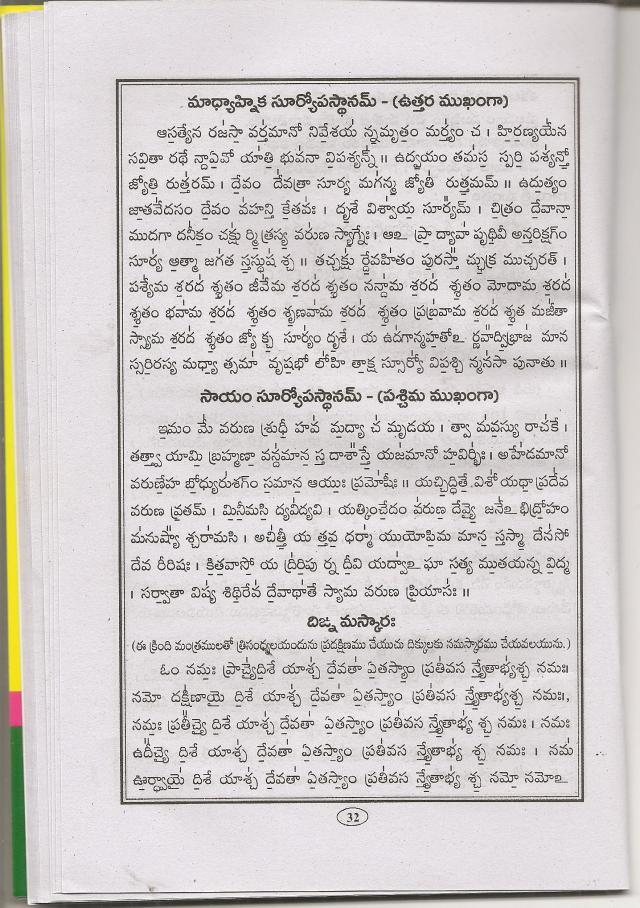 మాధ్యాహ్నిక సూర్యోపస్థానమ్ - (ఉత్తర ముఖంగా)
ఆసత్యేన రజసా వర్తమానో నివేశయ న్నమృతం మర్త్యం చ । హిరణ్యయేన
సవితా రథే నాదేవో యాతి భువనా విపశ్యన్న్ ॥ ఉద్వయం తమస స్పరి పశ్యన్తో
జ్యోతి రుత్తరమ్ । దేవం దేవత్రా సూర్య మగన్మ జ్యోతి రుత్తమమ్ ॥ ఉదుత్యం
జాతవేదసం దేవం వహన్తి కేతవః । దృశే విశ్వాయ సూర్యమ్ । చిత్రం దేవానా
ముదగా దనీకం చక్షు ర్మిత్రస్య వరుణ స్యాగ్నేః । ఆఽ ప్రా ద్యావా పృథివీ అన్తరిక్షగం
సూర్య ఆత్మా జగత స్తస్థుష శ్చ ॥ తచ్చక్షు ర్దేవహితం పురస్తా చ్ఛుక్ర ముచ్చరత్ ।
పశ్యేమ శరద శ్శతం జీవేమ శరద శ్శతం నన్దామ శరద శ్శతం మోదామ శరద
శ్శతం భవామ శరద శ్శతం శృణవామ శరద శ్శతం ప్రబ్రవామ శరద శ్శత మజీతా
స్యామ శరద శ్శతం జ్యో క్చ సూర్యం దృశే । య ఉదగాన్మహతోఽ ర్ణవాద్విభ్రాజ మాన
స్సరిరస్య మధ్యా త్సమా వృషభో లోహి తాక్ష స్సూర్యో విపశ్చి న్మనసా పునాతు ॥
సాయం సూర్యోపస్థానమ్ - (పశ్చిమ ముఖంగా)
ఇమం మే వరుణ శ్రుధీ హవ మద్యా చ మృడయ । త్వా మవస్యు రాచకే ।
తత్త్వా యామి బ్రహ్మణా వన్దమాన స్త దాశాస్తే యజమానో హవిర్భిః । అహేడమానో
వరుణేహ బోధ్యురుశగం సమాన ఆయుః ప్రమోషీః ॥ యచ్చిద్ధితే విశో యథా ప్రదేవ
వరుణ వ్రతమ్ । మినీమసి ద్యవిద్యవి । యత్కించేదం వరుణ దేవ్యై జనేఽ భిద్రోహం
మనుష్యా శ్చరామసి । అచిత్తీ య త్తవ ధర్మా యుయోపిమ మాన స్తస్మా దేనసో
దేవ రీరిషః । కితవాసో య ద్రిరిపు ర్న దీవి యద్వాఽ ఘా సత్య ముతయన్న విద్మ
। సర్వాతా విష్య శిథిరేవ దేవాథాతే స్యామ వరుణ ప్రియాసః ॥
దిఙ్న మస్కారః
(ఈ క్రింది మంత్రములతో త్రిసంధ్యలయందును ప్రదక్షిణము చేయుచు దిక్కులకు నమస్కారము చేయవలయును.)
ఓం నమః ప్రాచ్యైదిశే యాశ్చ దేవతా ఏతస్యాం ప్రతివస న్త్యేతాభ్యశ్చ నమః।
నమో దక్షిణాయై దిశే యాశ్చ దేవతా ఏతస్యాం ప్రతివస న్త్యేతాభ్యశ్చ నమః।,
నమః ప్రతీచ్యై దిశే యాశ్చ దేవతా ఏతస్యాం ప్రతివస న్త్యేతాభ్య శ్చ నమః । నమః
ఉదీచ్యై దిశే యాశ్చ దేవతా ఏతస్యాం ప్రతివస న్త్యేతాభ్య శ్చ నమః । నమ
ఊర్ధ్వాయై దిశే యాశ్చ దేవతా ఏతస్యాం ప్రతివస న్త్యేతాభ్య శ్చ నమో నమోఽ
32